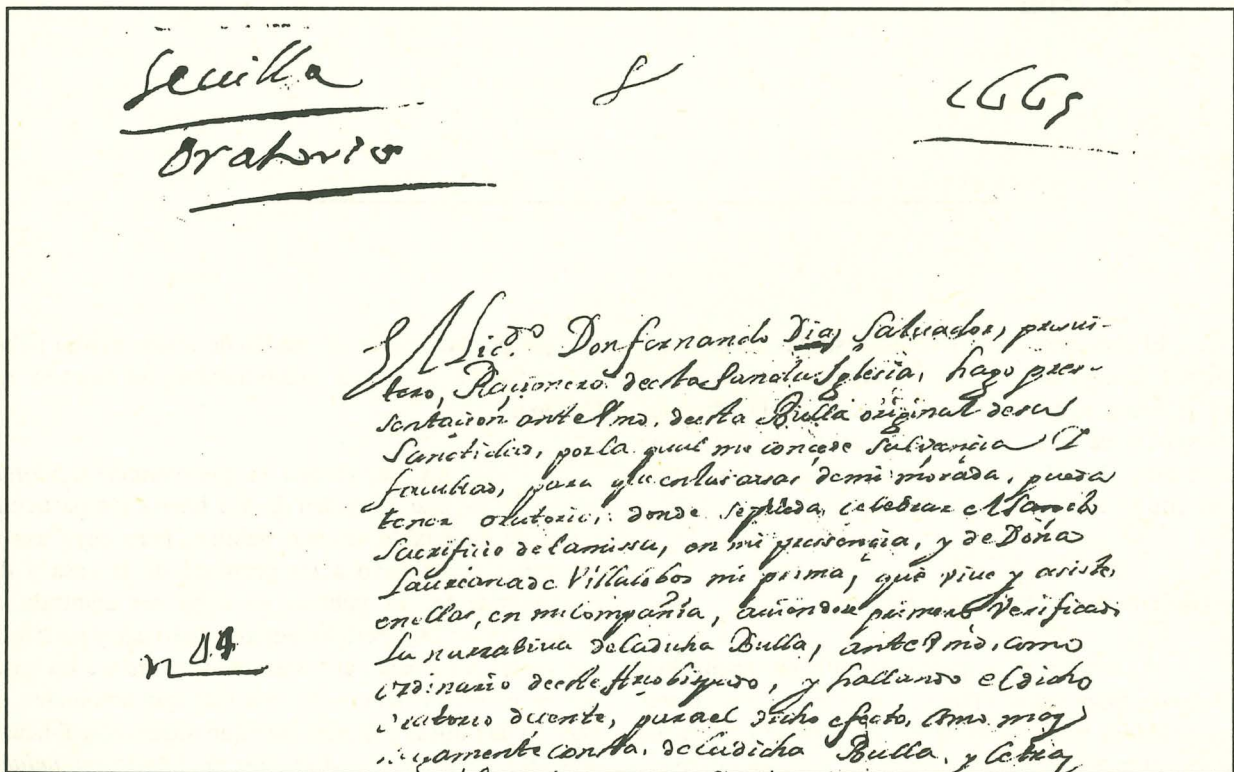 Seuilla
1665
Oratorio
El Licdo. Don fernando Dias Saluador, presui-
tero, Racionero desta Sancta Iglesia, hago pre-
sentacion ante Vmd. desta Bulla original de su
Sanctidad, por la qual me concede
facultad, para que en las casas de mi morada, pueda
tener oratorio, donde se pueda celebrar el Sancto
Sacrificio de la missa, en mi presencia, y de Doña
Laureana de Villalobos mi prima, que viue y asiste
en ellas, en mi Compañia, auiendose primero Verificado
La narratiua de la dicha Bulla, ante Vmd. como
ordinario deste Arzobispado, y hallando el dicho
oratorio decente, para el dicho efecto, Como mas
consta, de la dicha Bulla, y letras
n 14